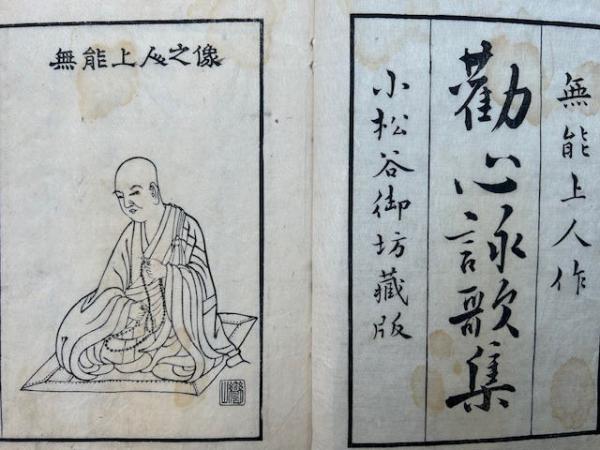 無能上人作
勸心詠歌集
小松谷御坊藏版
無能上人之像